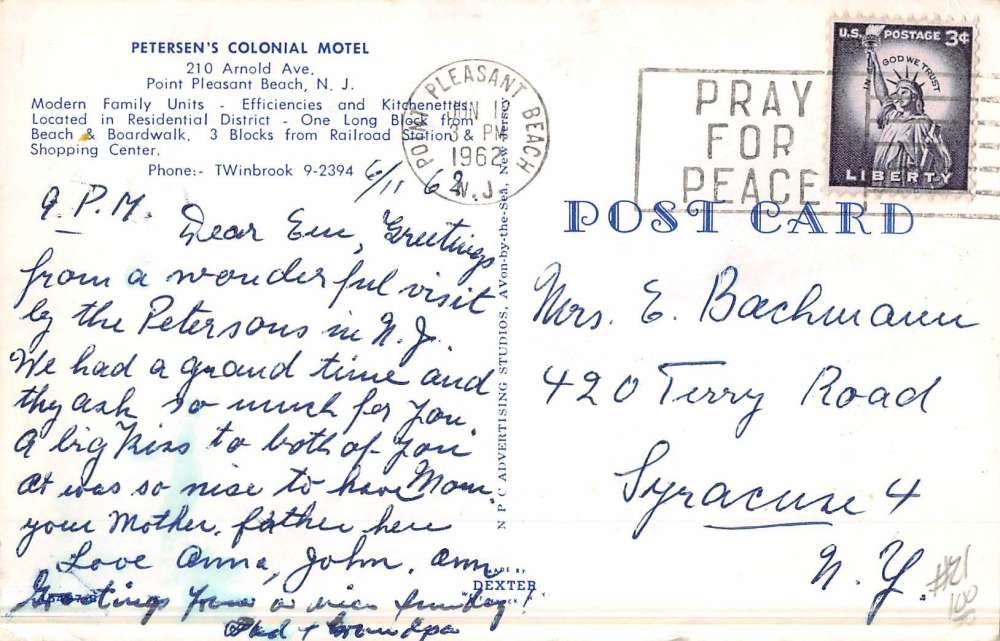 PETERSEN'S COLONIAL MOTEL
210 Arnold Ave.
Point Pleasant Beach, N. J.
Modern Family Units - Efficiencies and Kitchenettes
Located in Residential District - One Long Block from
Beach & Boardwalk. 3 Blocks from Railroad Station &
Shopping Center.
Phone:- TWinbrook 9-2394
6/11 62
9. P.M.
Dear Em, Greetings
from a wonderful visit
by the Petersons in N. J.
We had a grand time and
they ask so much for you.
A big kiss to both of you
It was so nise to have Mom.
your Mother. father here
Love Anna, John, Ann
Greetings from a nice Sunday!
Dad + Grandpa
N P C ADVERTISING STUDIOS, AVon-by-the-Sea, New Jersey
MADE BY
DEXTER
POINT PLEASANT BEACH
JUN 1
3 PM
1962
N.J.
PRAY
FOR
PEACE
U.S. POSTAGE 3¢
IN GOD WE TRUST
LIBERTY
POST CARD
Mrs. E. Bachmann
420 Terry Road
Syracuse 4
N. Y.
#21
100